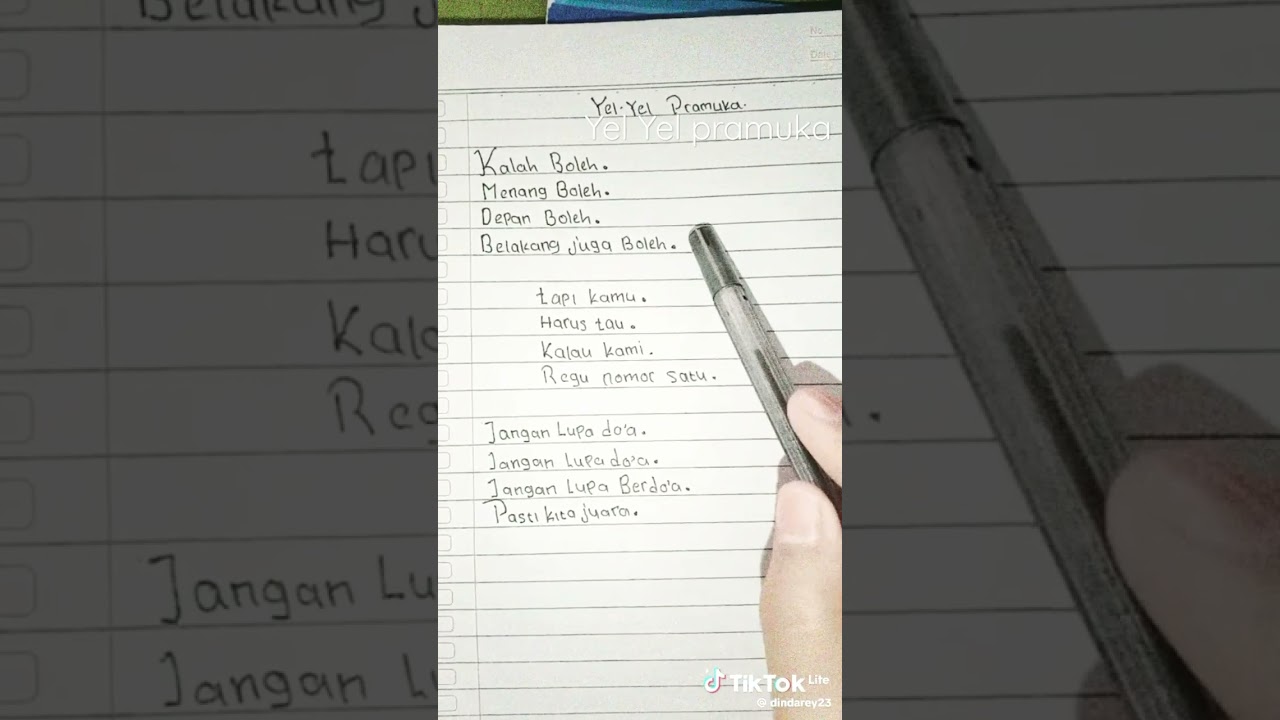 No
Date
Yel-Yel Pramuka.
Yel Yel pramuka
Kalah Boleh.
Menang Boleh.
Depan Boleh.
Belakang juga Boleh.
tapi kamu.
Harus tau.
Kalau kami.
Regu nomor satu.
Jangan Lupa do'a.
Jangan Lupa do'a.
Jangan Lupa Berdo'a.
Pasti kita juara.
TikTok Lite
@dindarey23